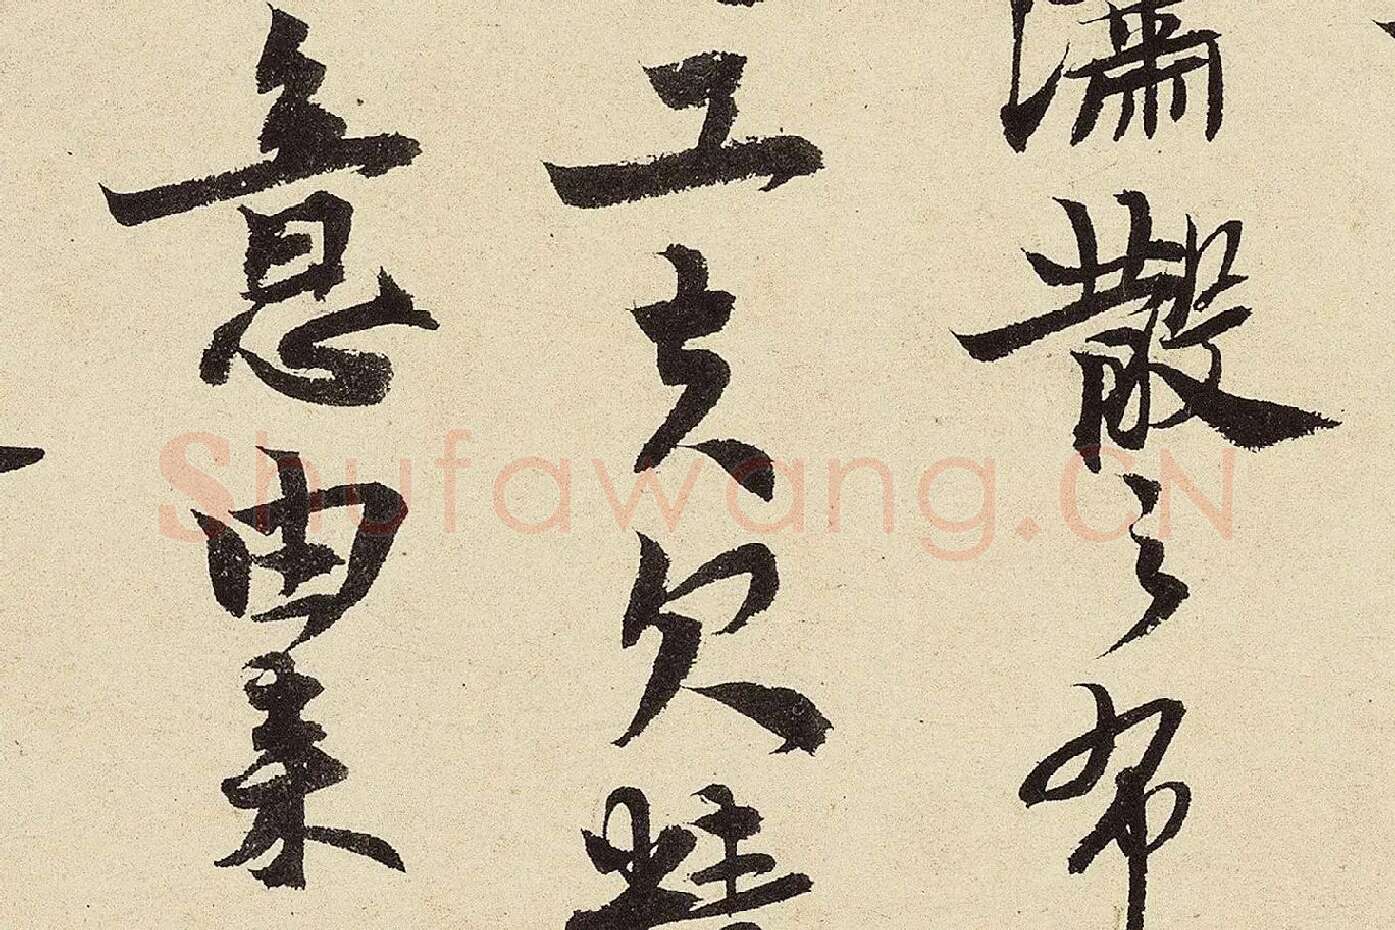 瀟散之布
工夫欠
意由来
Shufawang.CN